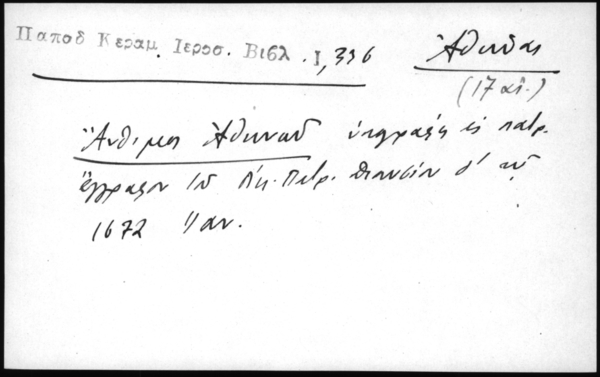 Παποδ Κεραμ. Ιεροσ. Βιβλ. Ι, 336
Ἀθηνῶν
(17 αἰ.)
Ἄνθιμος Ἀθηνῶν ὑπογραφὴ εἰς πατρ.
ἔγγραφον τοῦ Οἰκ. Πατρ. Διονυσίου Δ' τοῦ
1672 Ἰαν.